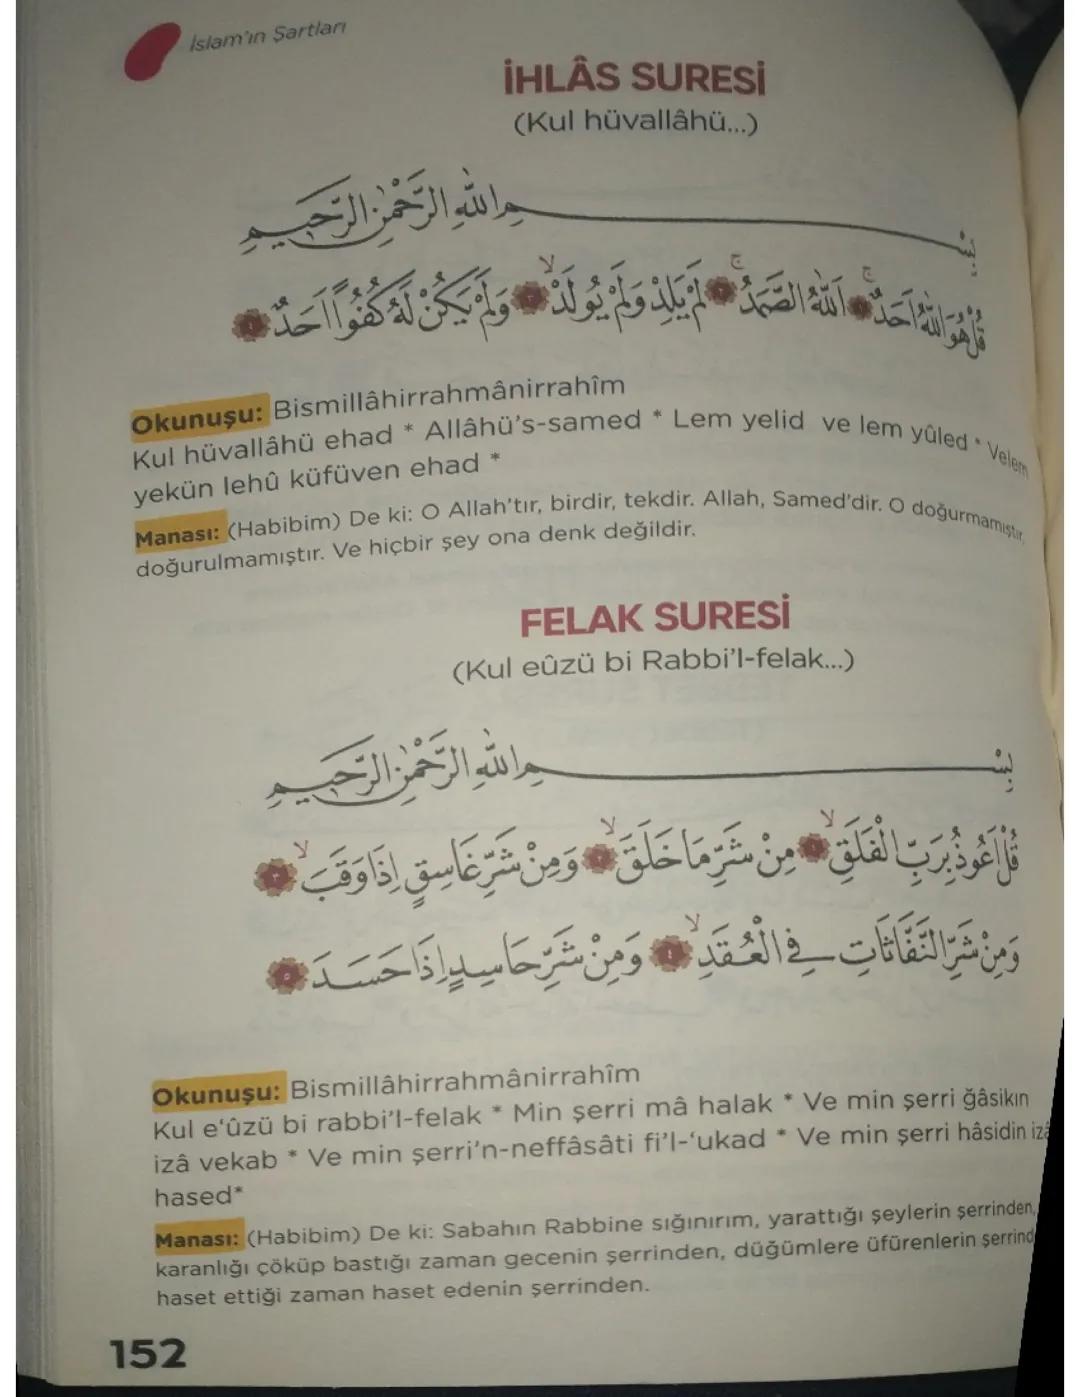 İslam'ın Şartları
İHLÂS SURESİ
(Kul hüvallâhü...)
بِسْمِ اللّٰهِ الرَّحْمٰنِ الرَّحِيمِ
قُلْ هُوَ اللّٰهُ اَحَدٌۚ ١ اَللّٰهُ الصَّمَدُۚ ٢ لَمْ يَلِدْ وَلَمْ يُولَدْۙ ٣ وَلَمْ يَكُنْ لَهُ كُفُوًا اَحَدٌ ٤
Okunuşu: Bismillâhirrahmânirrahîm
Kul hüvallâhü ehad * Allâhü's-samed * Lem yelid ve lem yûled * Velem
yekün lehû küfüven ehad *
Manası: (Habibim) De ki: O Allah'tır, birdir, tekdir. Allah, Samed'dir. O doğurmamıştır,
doğurulmamıştır. Ve hiçbir şey ona denk değildir.
FELAK SURESİ
(Kul eûzü bi Rabbi'l-felak...)
بِسْمِ اللّٰهِ الرَّحْمٰنِ الرَّحِيمِ
قُلْ اَعُوذُ بِرَبِّ الْفَلَقِۙ ١ مِنْ شَرِّ مَا خَلَقَۙ ٢ وَمِنْ شَرِّ غَاسِقٍ اِذَا وَقَبَۙ ٣
وَمِنْ شَرِّ النَّفَّاثَاتِ فِي الْعُقَدِۙ ٤ وَمِنْ شَرِّ حَاسِدٍ اِذَا حَسَدَ ٥
Okunuşu: Bismillâhirrahmânirrahîm
Kul e‘ûzü bi rabbi'l-felak * Min şerri mâ halak * Ve min şerri ğâsikın
izâ vekab * Ve min şerri'n-neffâsâti fi'l-‘ukad * Ve min şerri hâsidin izâ
hased*
Manası: (Habibim) De ki: Sabahın Rabbine sığınırım, yarattığı şeylerin şerrinden,
karanlığı çöküp bastığı zaman gecenin şerrinden, düğümlere üfürenlerin şerrind
haset ettiği zaman haset edenin şerrinden.
152